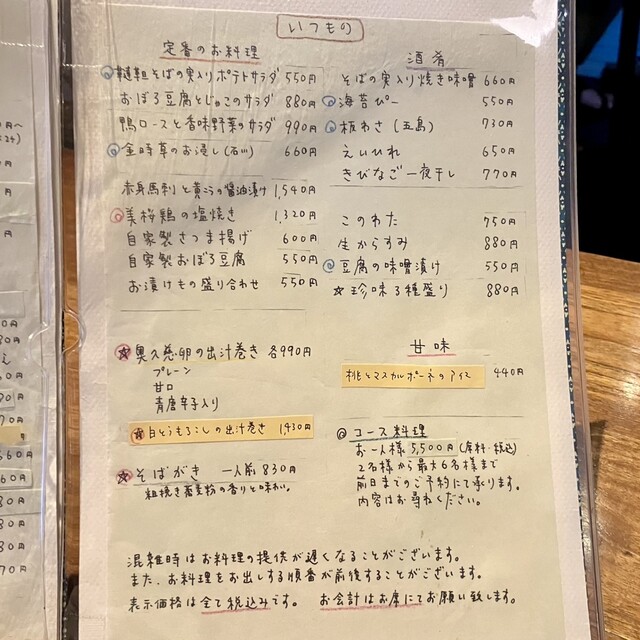 いつもの
定番のお料理
韃靼そばの実入りポテトサラダ 550円
おぼろ豆腐とじゃこのサラダ 880円
鴨ロースと香味野菜のサラダ 990円
金時草のお浸し(石川) 660円
赤身馬刺と黄ニラの醤油漬け 1,540円
美桜鶏の塩焼き 1,320円
自家製さつま揚げ 600円
自家製おぼろ豆腐 550円
お漬けもの盛り合わせ 550円
☆奥久慈卵の出汁巻き 各990円
プレーン
甘口
青唐辛子入り
☆白とうもろこしの出汁巻き 1,430円
☆そばがき 一人前 830円
粗挽き蕎麦粉の香りと味わい。
酒肴
そばの実入り焼き味噌 660円
海苔ぴー 550円
板わさ(五島) 730円
えいひれ 650円
きびなご一夜干し 770円
このわた 750円
生からすみ 880円
豆腐の味噌漬け 550円
☆珍味3種盛り 880円
甘味
桃とマスカルポーネのアイス 440円
◎コース料理
お一人様 5,500円(席料・税込)
2名様から最大6名様まで
前日までのご予約にて承ります。
内容はお尋ねください。
混雑時はお料理の提供が遅くなることがございます。
また、お料理をお出しする順番が前後することがございます。
表示価格は全て税込みです。 お会計はお席にてお願い致します。